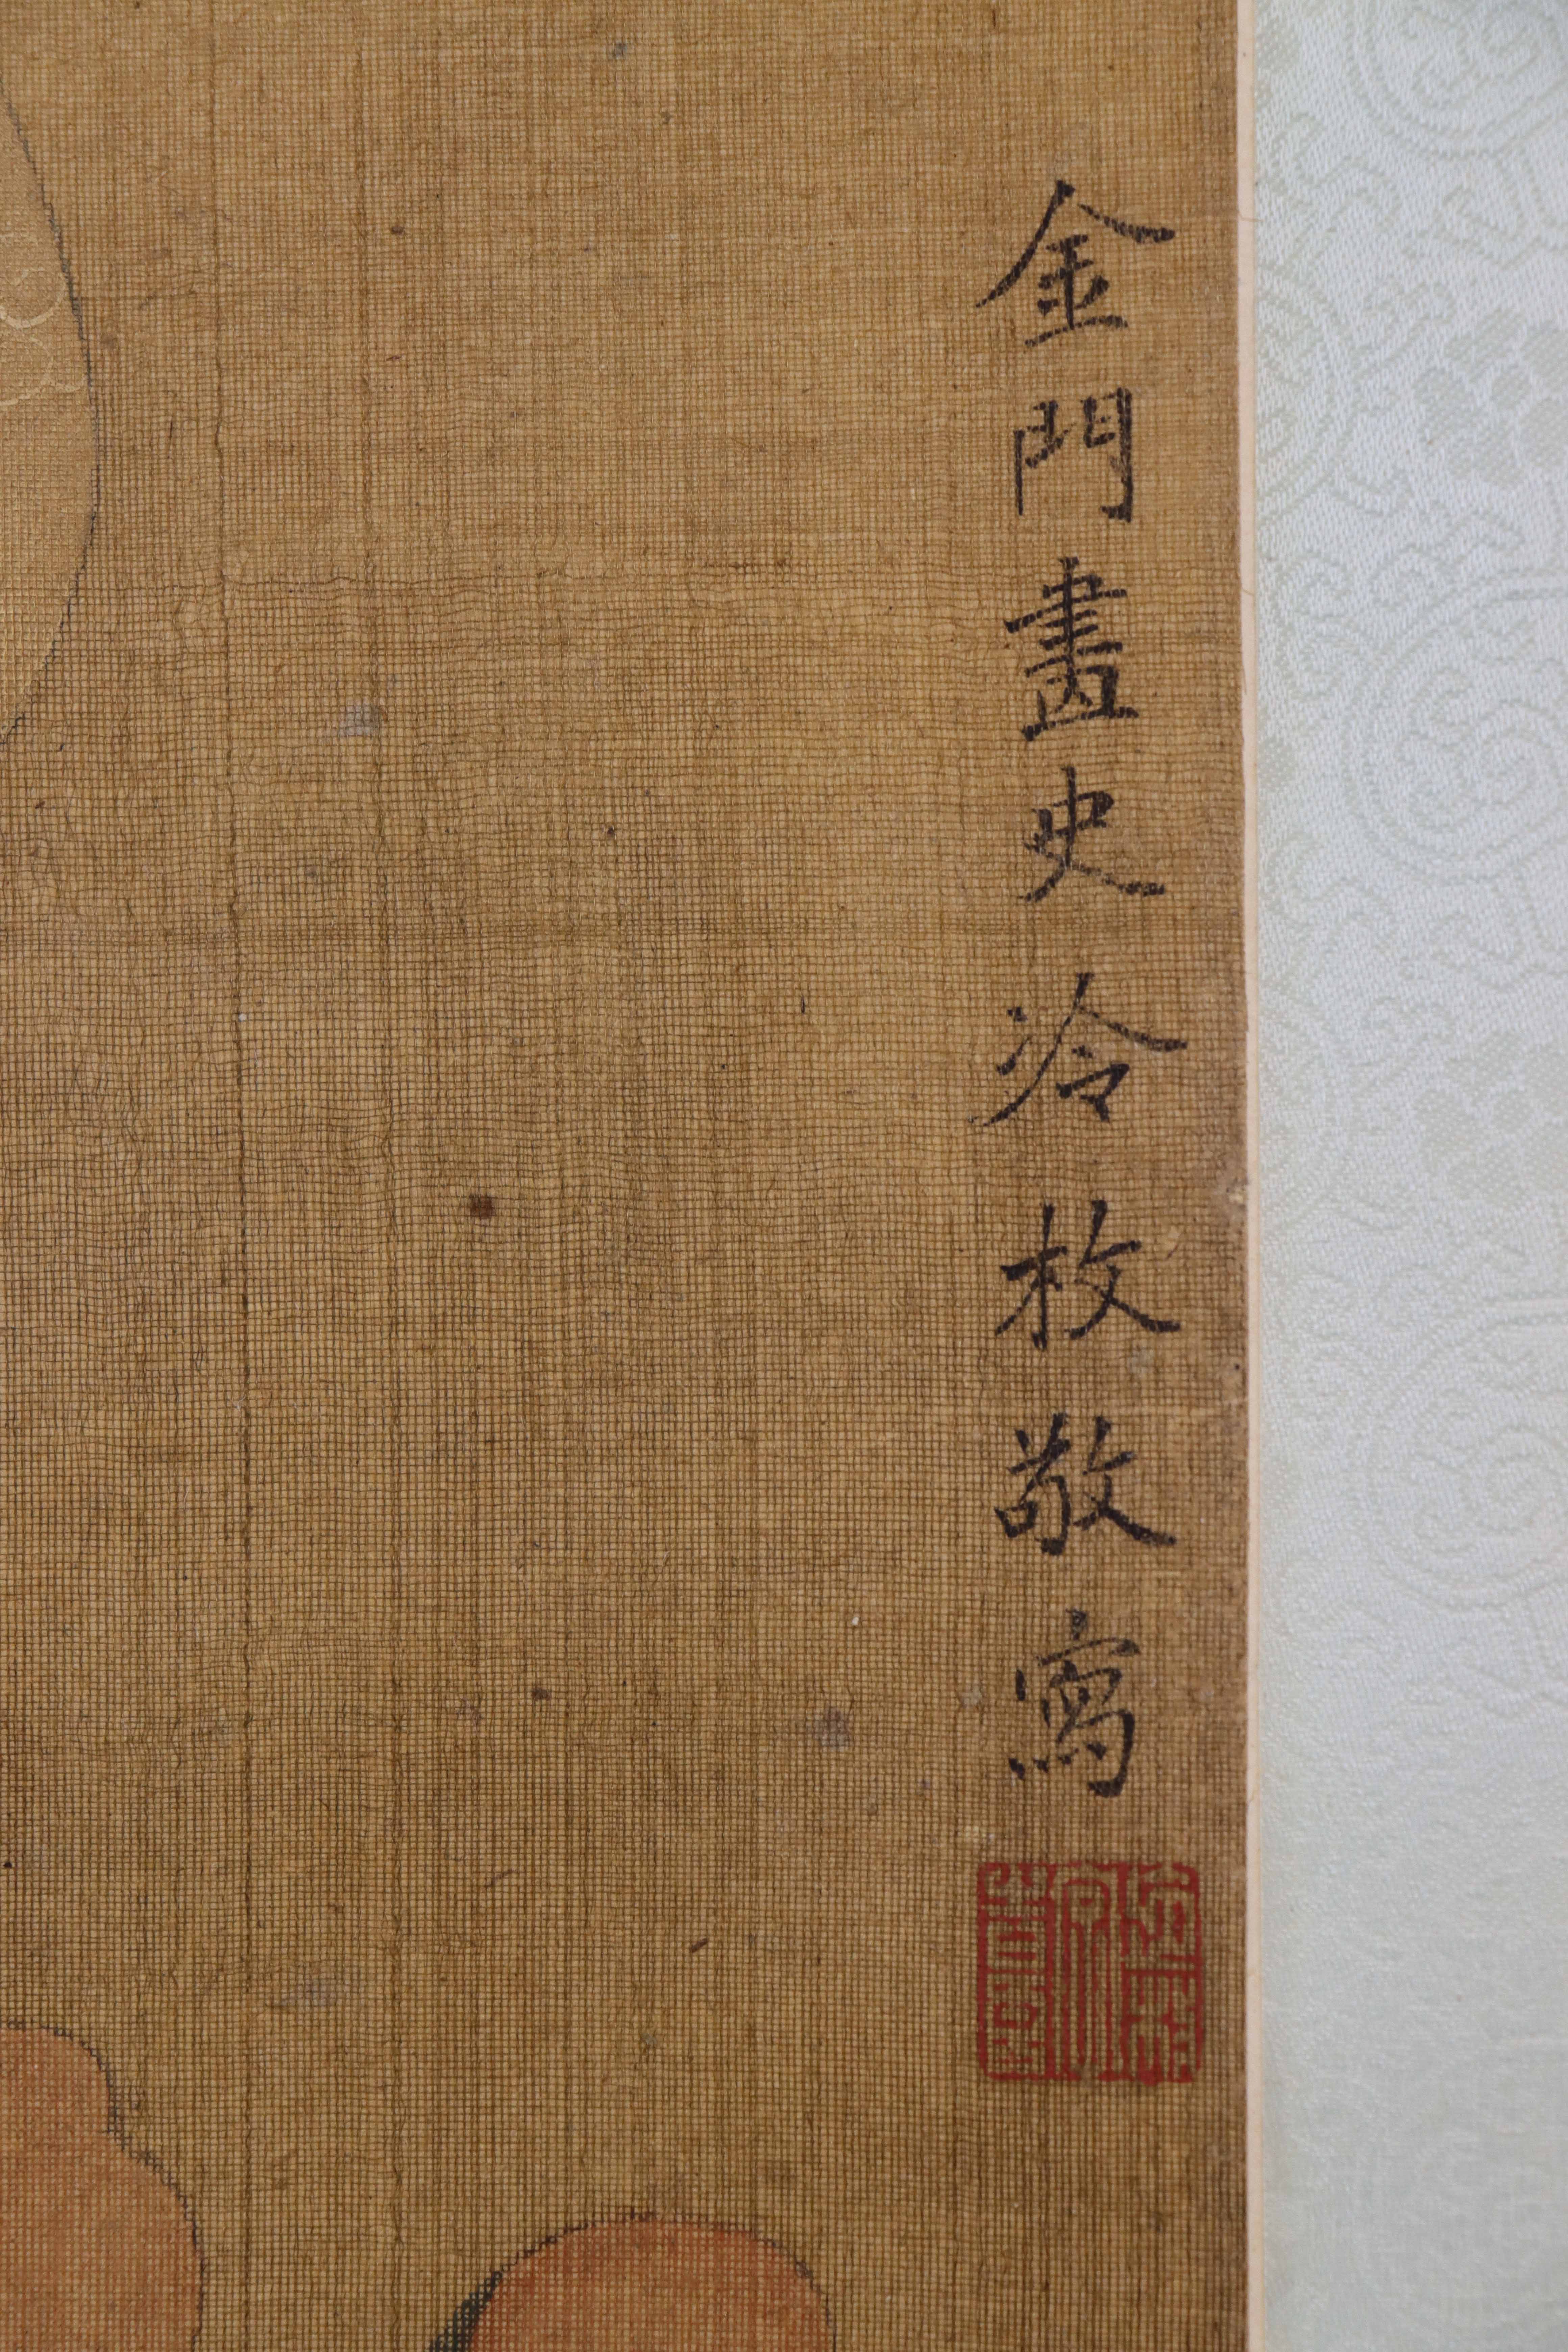 金門畫史冷枚敬寫